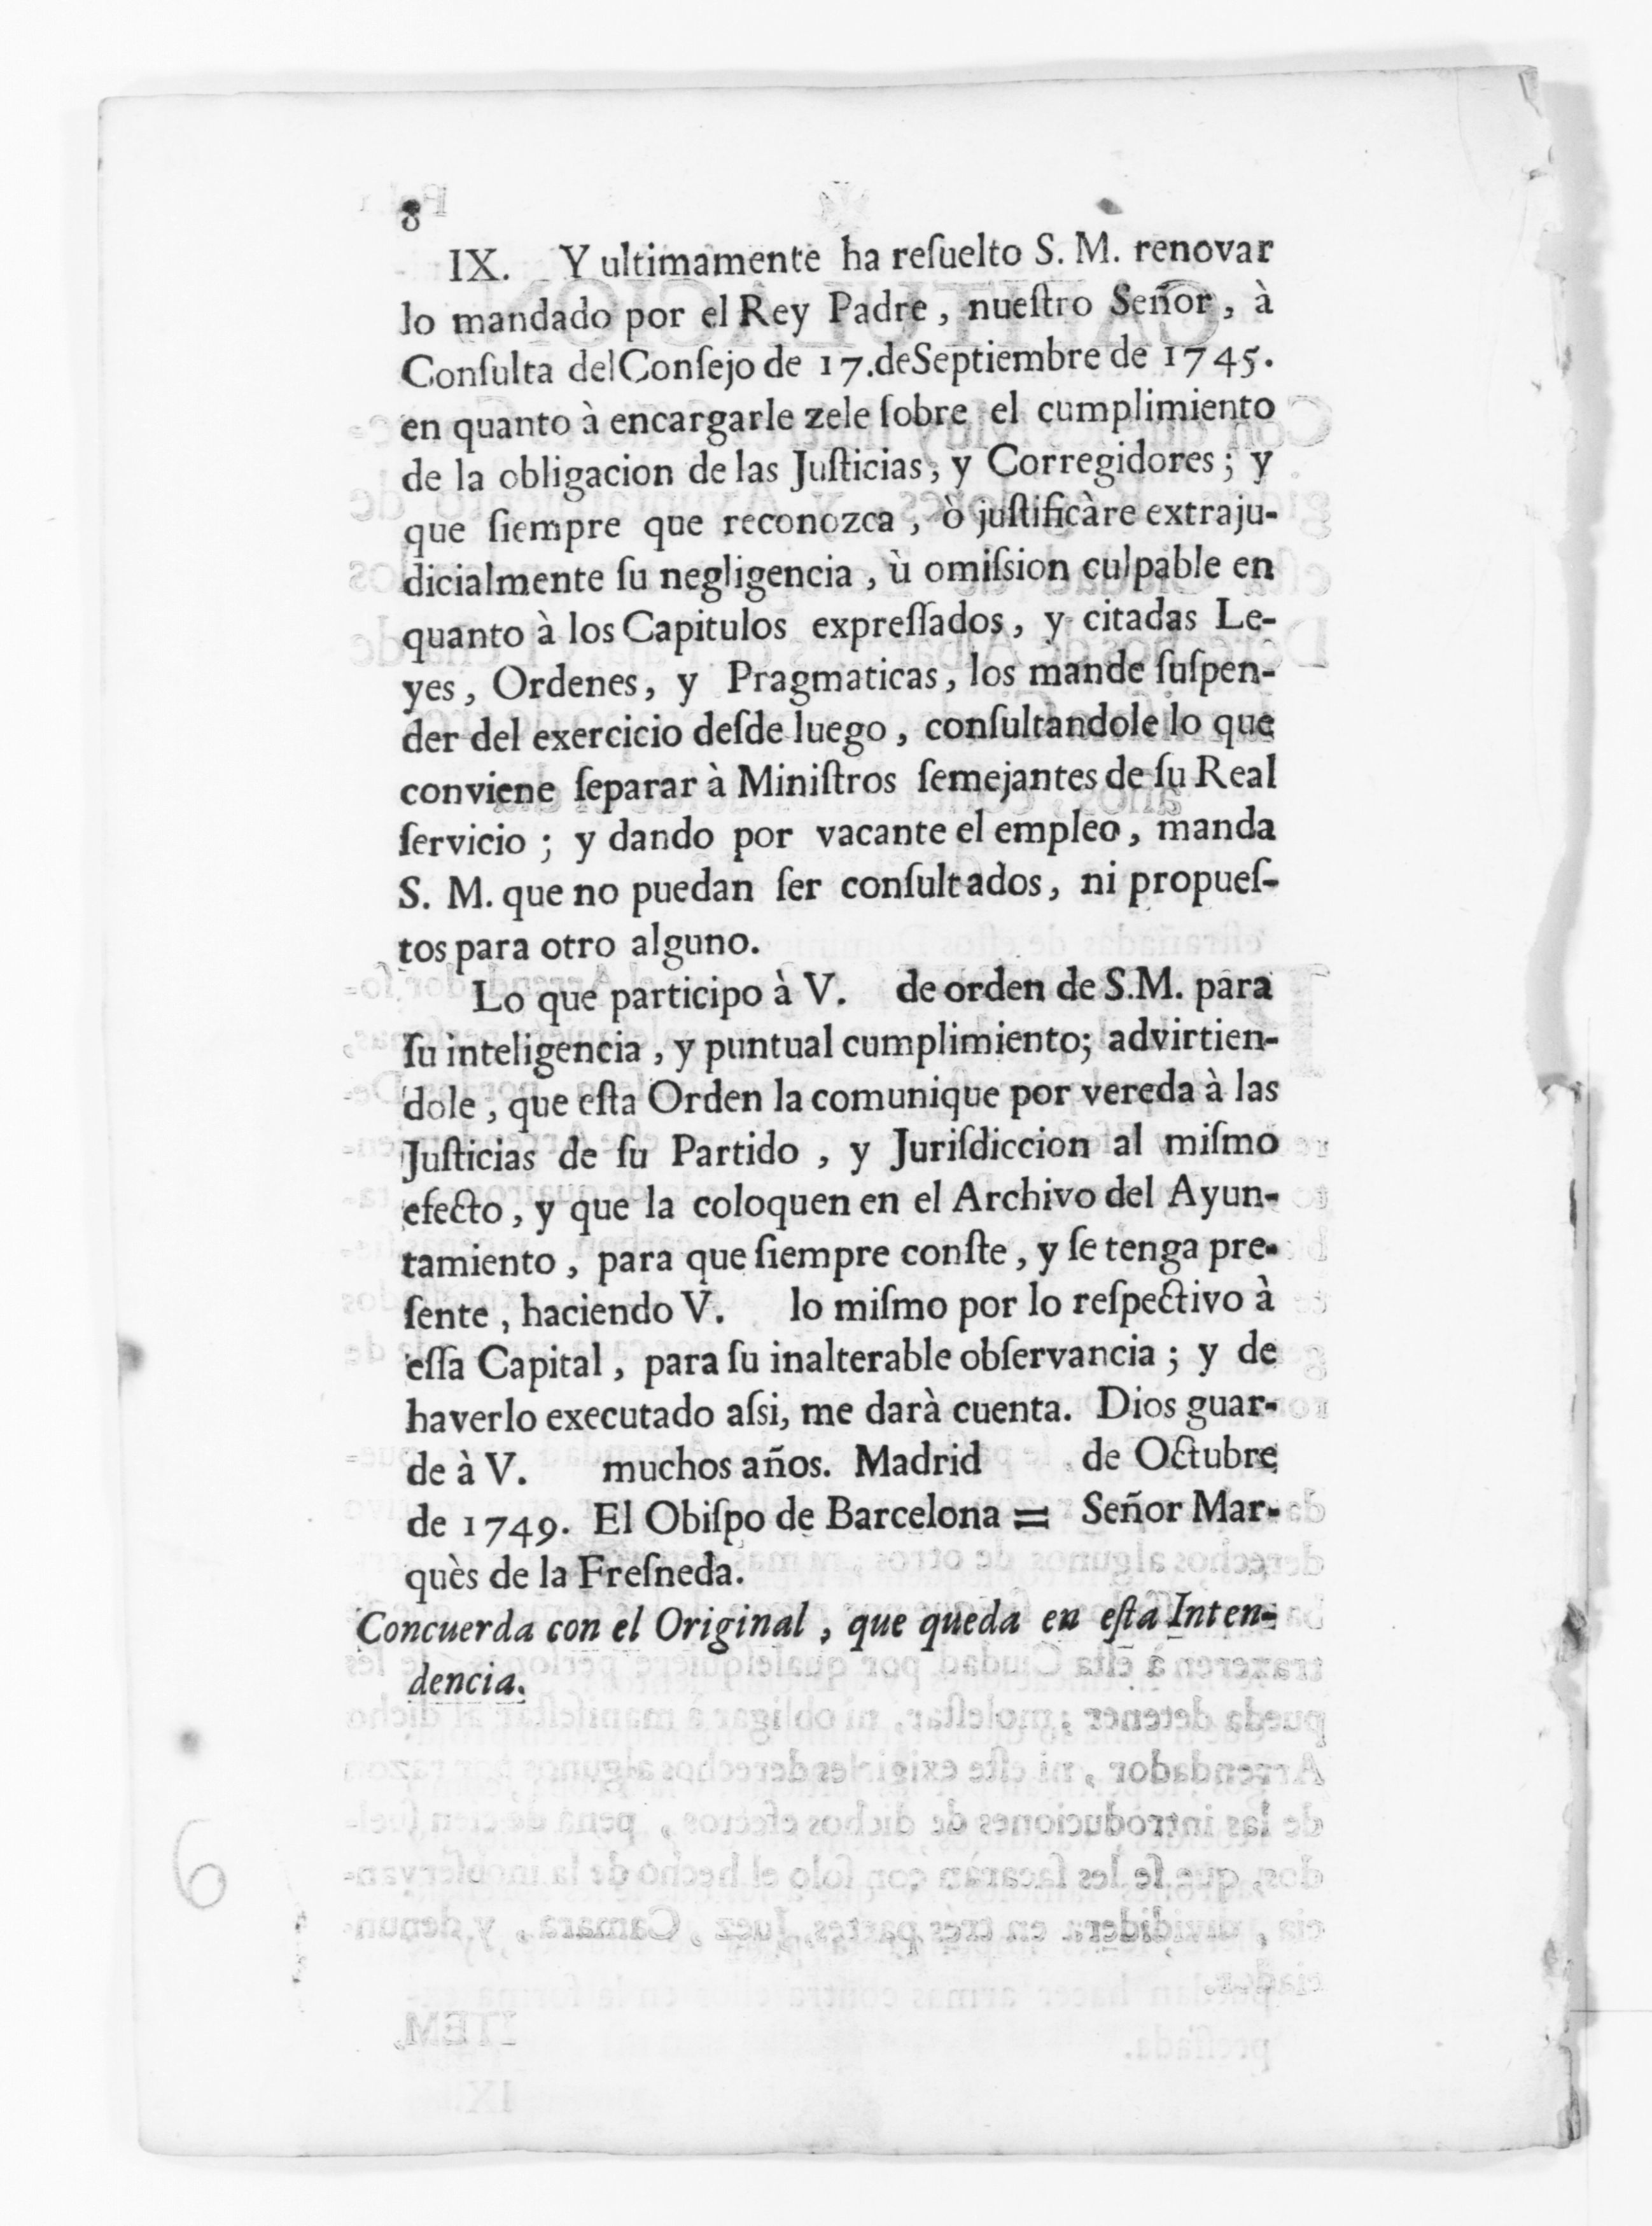 8
IX. Y ultimamente ha reſuelto S. M. renovar
lo mandado por el Rey Padre, nueſtro Señor, à
Conſulta del Conſejo de 17. de Septiembre de 1745.
en quanto à encargarle zele ſobre el cumplimiento
de la obligacion de las Juſticias, y Corregidores; y
que ſiempre que reconozca, ò juſtificàre extraju-
dicialmente ſu negligencia, ù omiſsion culpable en
quanto à los Capitulos expreſſados, y citadas Le-
yes, Ordenes, y Pragmaticas, los mande ſuſpen-
der del exercicio deſde luego, conſultandole lo que
conviene ſeparar à Miniſtros ſemejantes de ſu Real
ſervicio; y dando por vacante el empleo, manda
S. M. que no puedan ſer conſultados, ni propueſ-
tos para otro alguno.
Lo que participo à V. de orden de S.M. para
ſu inteligencia, y puntual cumplimiento; advirtien-
dole, que eſta Orden la comunique por vereda à las
Juſticias de ſu Partido, y Juriſdiccion al miſmo
efecto, y que la coloquen en el Archivo del Ayun-
tamiento, para que ſiempre conſte, y ſe tenga pre-
ſente, haciendo V. lo miſmo por lo reſpectivo à
eſſa Capital, para ſu inalterable obſervancia; y de
haverlo executado aſsi, me darà cuenta. Dios guar-
de à V. muchos años. Madrid de Octubre
de 1749. El Obiſpo de Barcelona = Señor Mar-
quès de la Freſneda.
Concuerda con el Original, que queda en eſta Inten-
dencia.
6